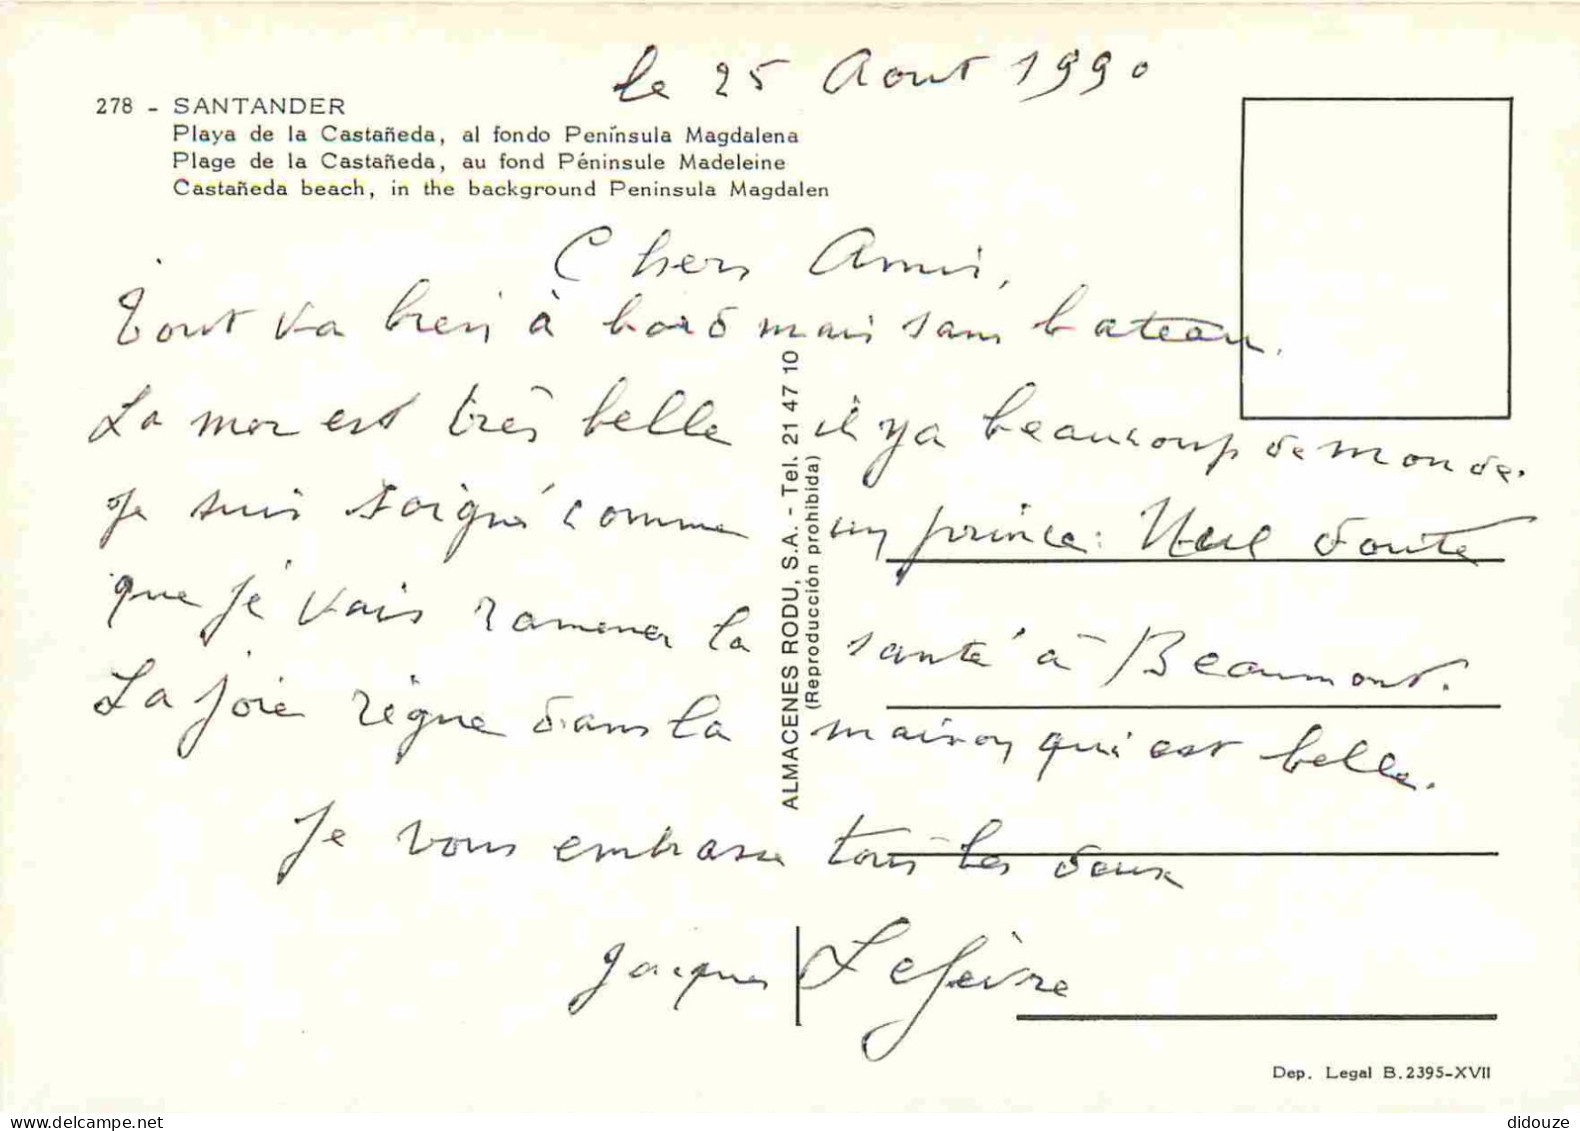 le 25 Aout 1990
278 - SANTANDER
Playa de la Castañeda, al fondo Península Magdalena
Plage de la Castañeda, au fond Péninsule Madeleine
Castañeda beach, in the background Peninsula Magdalen
Chers Amis,
Tout va bien à bord mais sans bateau.
La mer est très belle il y a beaucoup de monde.
Je suis soigné comme un prince. Nul doute
que je vais ramener la santé à Beaumont.
La joie règne dans la maison qui est belle.
Je vous embrasse tous les deux
Jacques Lefèvre
ALMACENES RODU, S.A. - Tel. 21 47 10
(Reproducción prohibida)
Dep. Legal B. 2395-XVII
delcampe.net
didouze